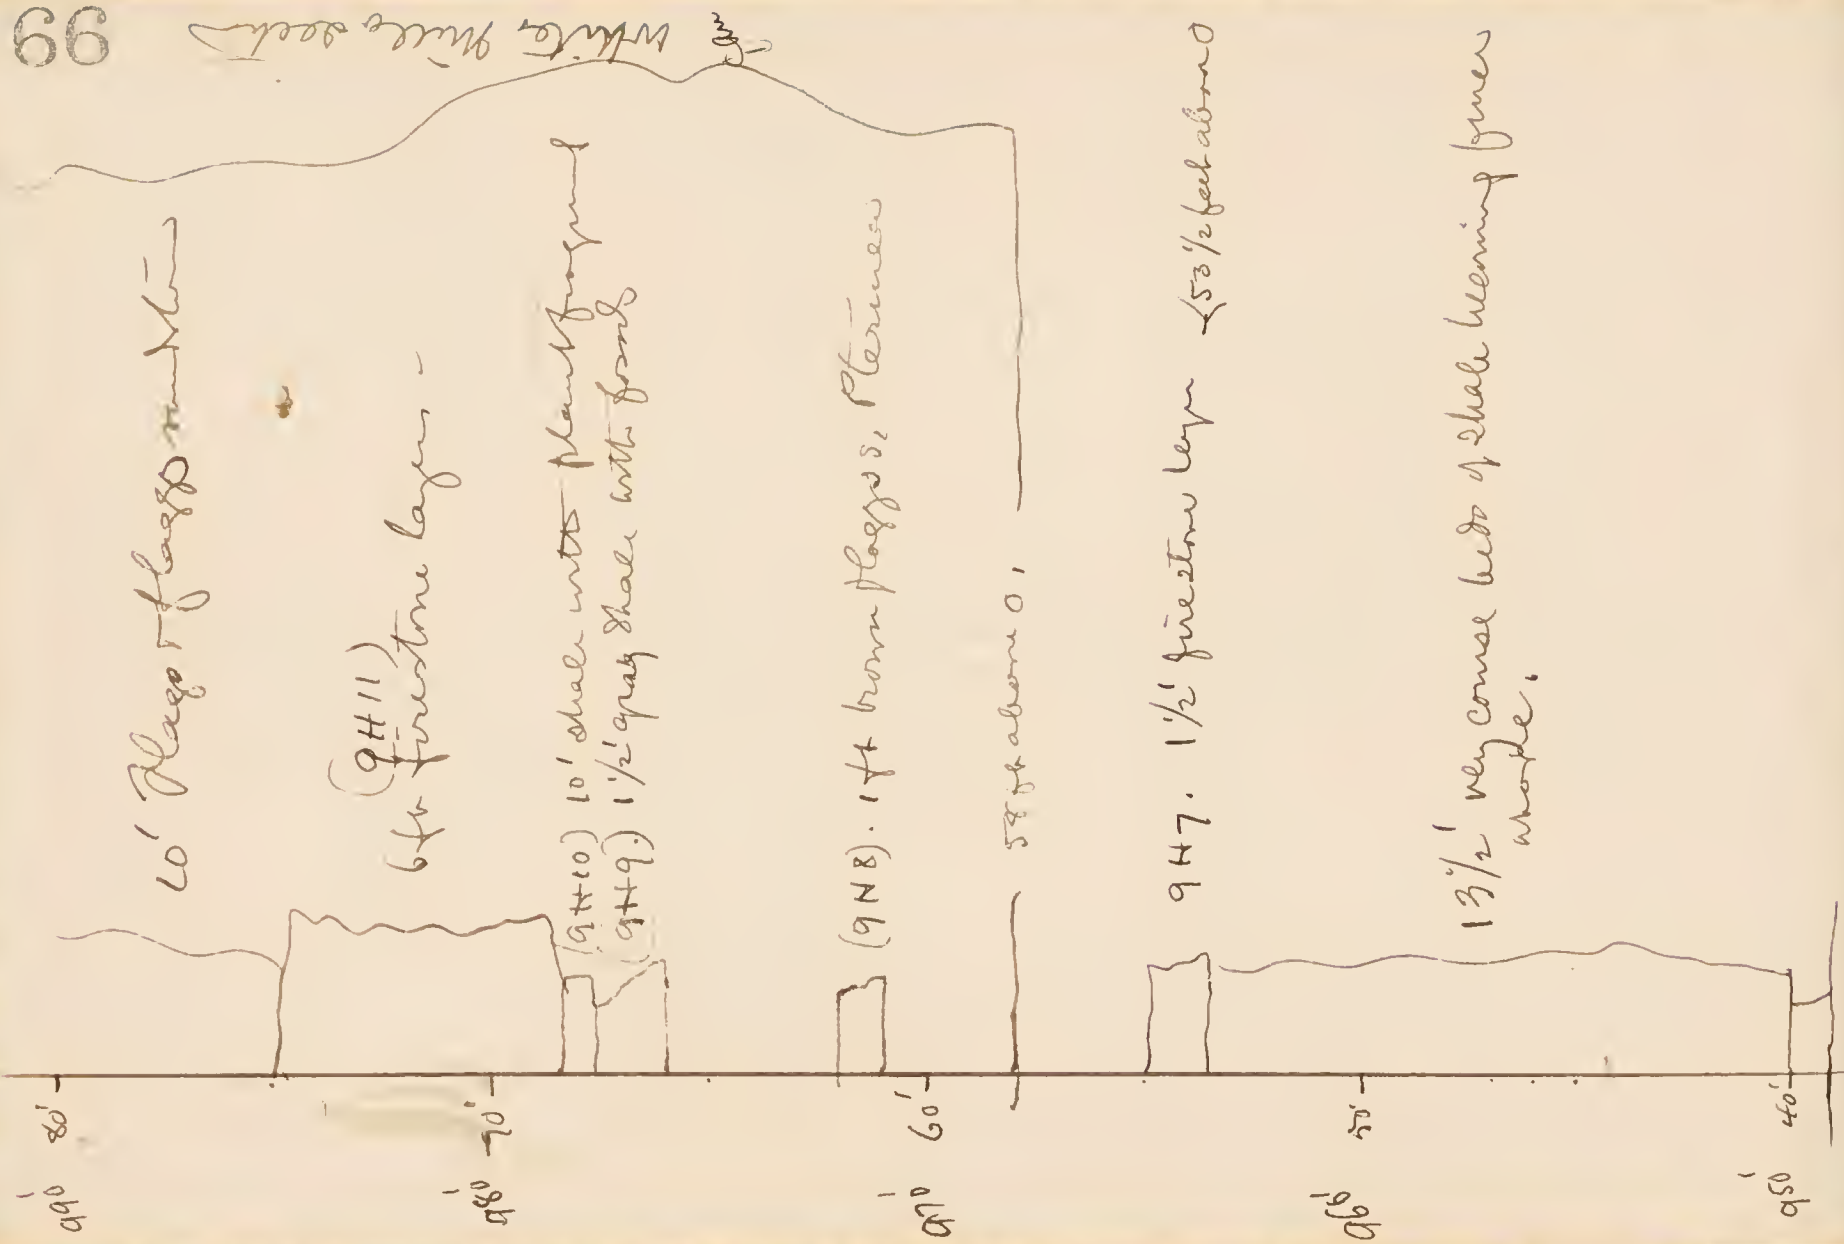 66
White Hill section
10' Flags & flaggy
(9H11)
6 ft firestone layer -
(9H10) 10' shale with plant fragment
(9H9.) 1 1/2' gray shale with fossils
(9H8). 1 ft brown flaggs, Pterinea
58 ft above 0.
9H7. 1 1/2' firestone layer {53 1/2 feet above 0
13 1/2' very course beds of shale weaming finer
whorle.
80' 70' 60' 50' 40'
990' 980' 970' 966' 950'